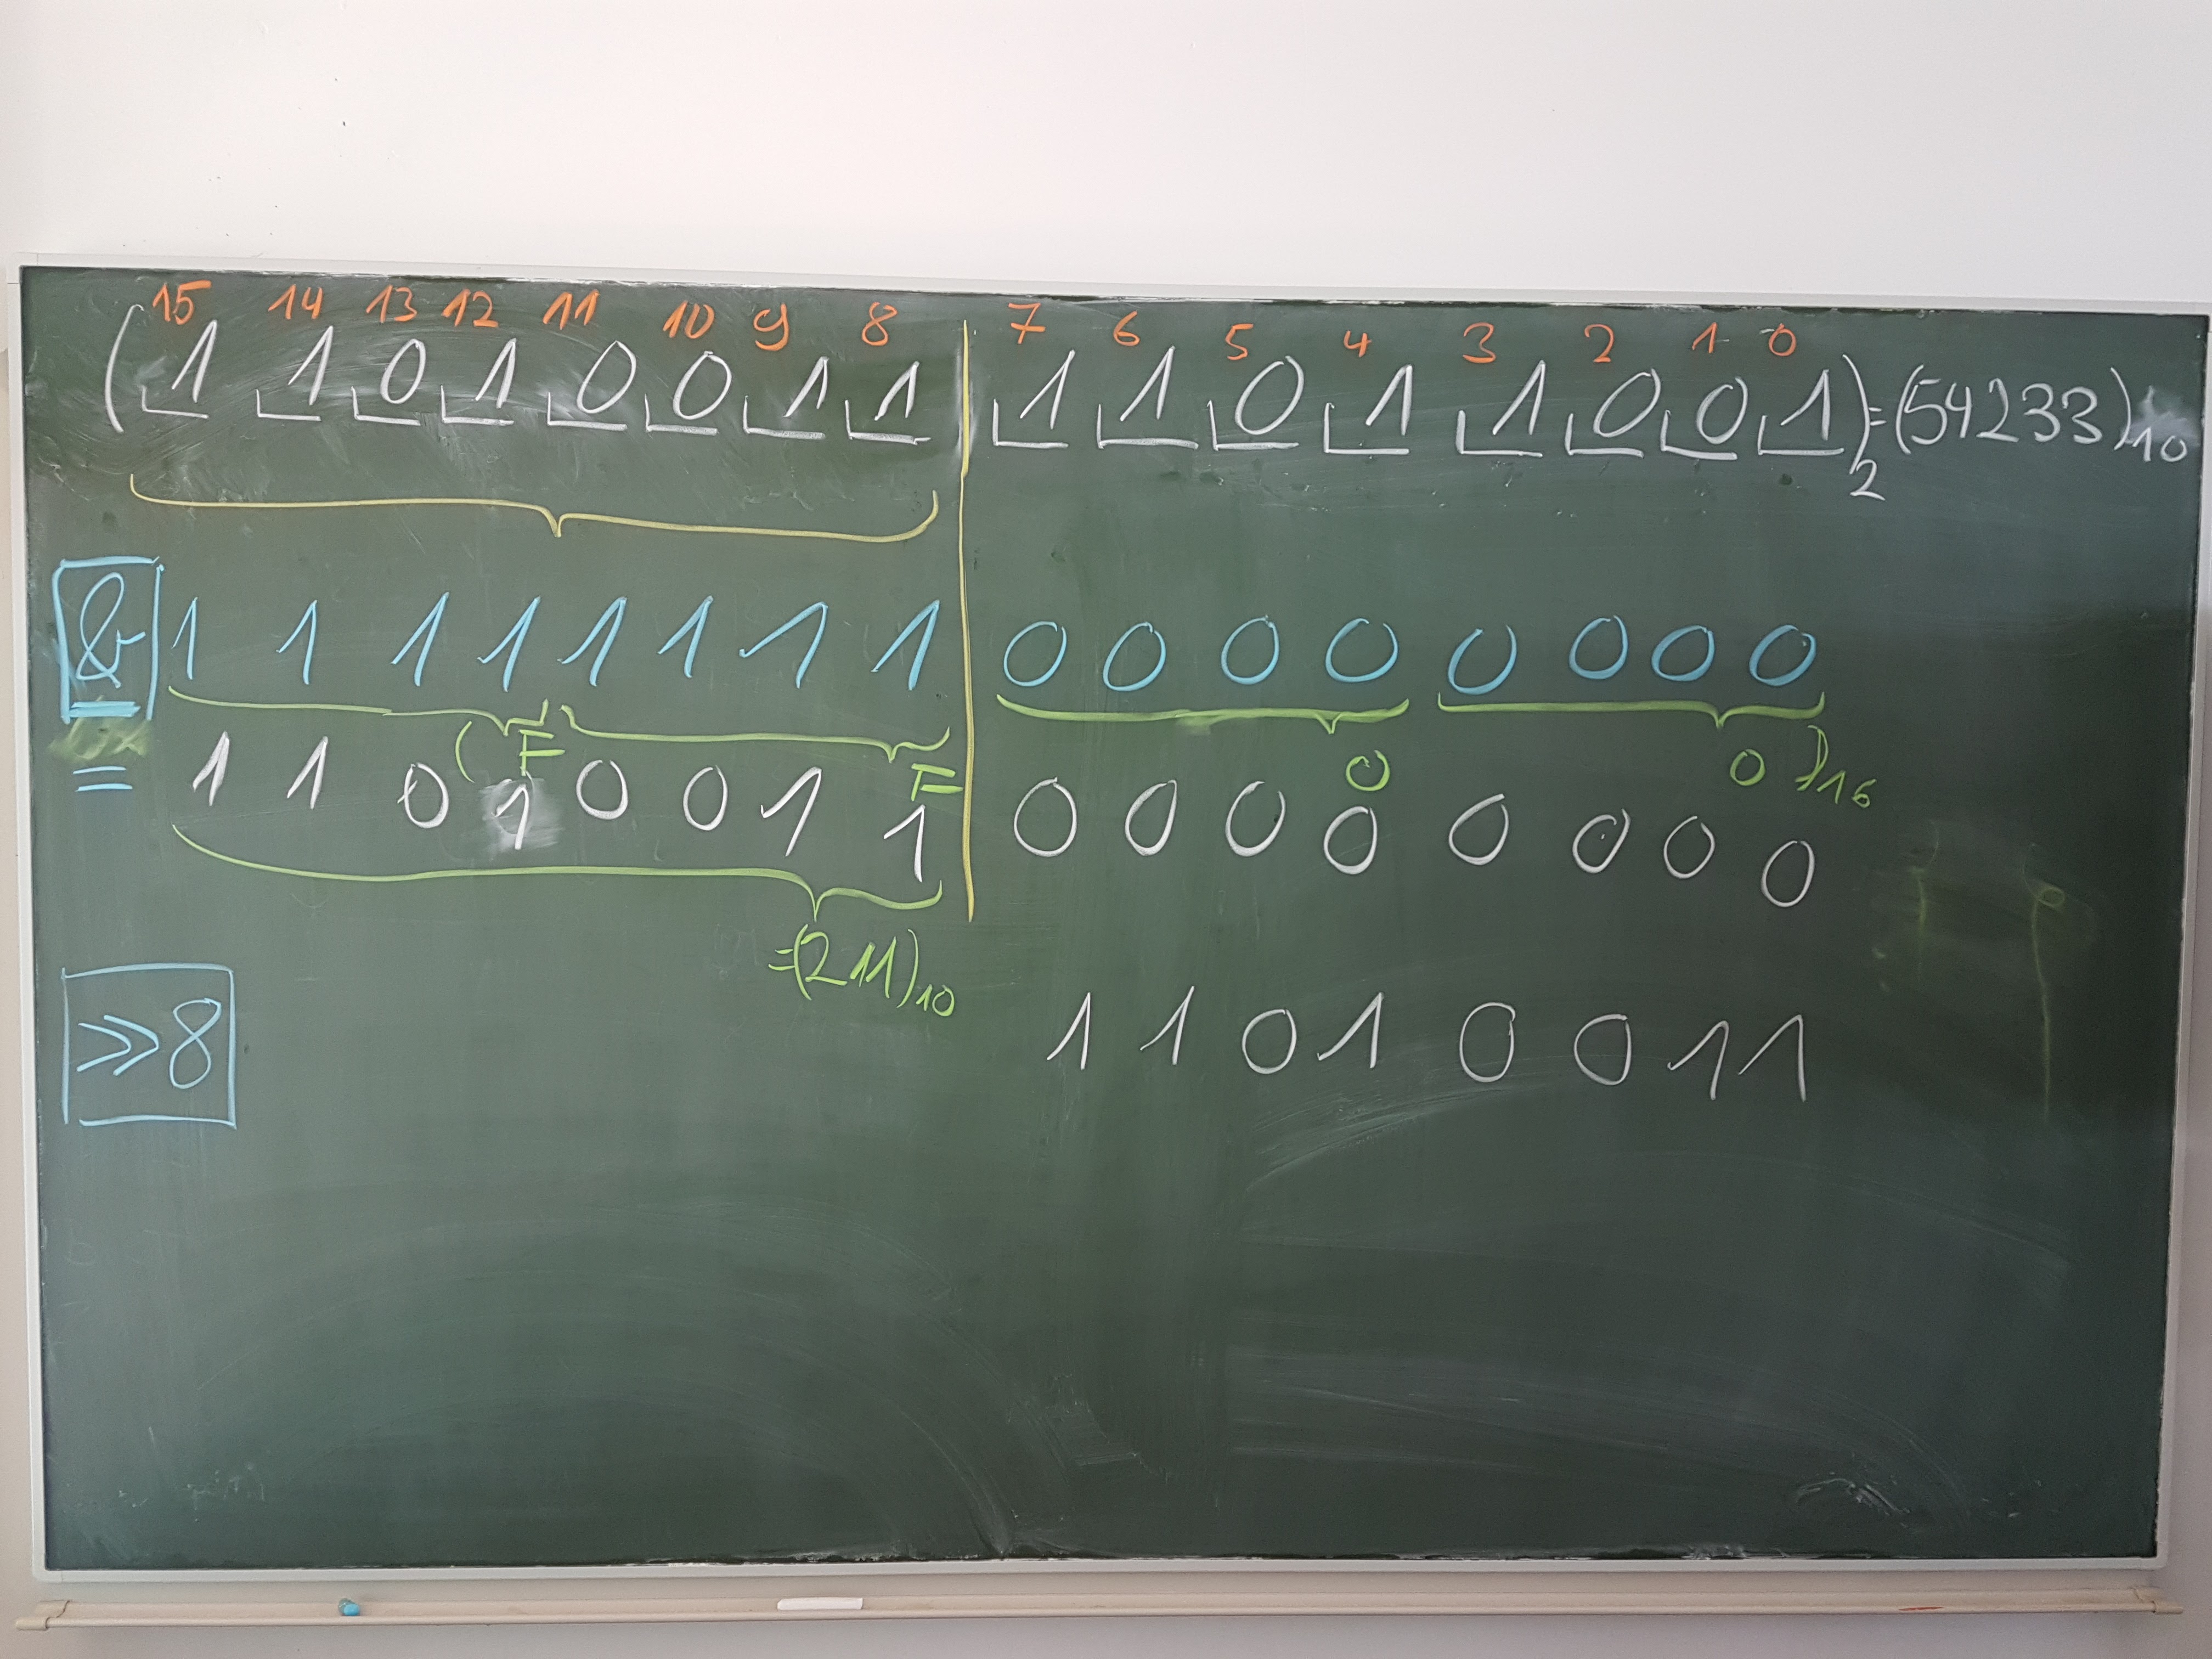 15 14 13 12 11 10 9 8 7 6 5 4 3 2 1 0
(1 1 0 1 0 0 1 1 1 1 0 1 1 0 0 1)2 = (54233)10
& 1 1 1 1 1 1 1 1 0 0 0 0 0 0 0 0
(F F 0 0)16
= 1 1 0 1 0 0 1 1 0 0 0 0 0 0 0 0
=(211)10
>>8 1 1 0 1 0 0 1 1